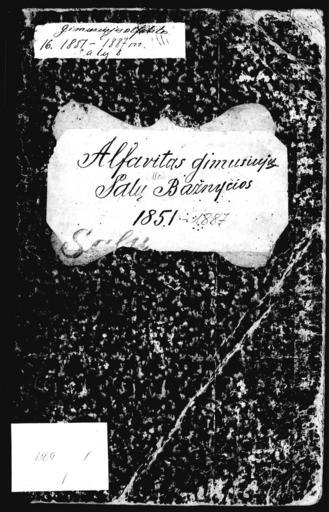 gimusiųjų alfabetas
16. 1851-1887 m.
Salų b
Alfavitas gimusiujų
Salų Bažnyčios
1851-1887
Salų
1